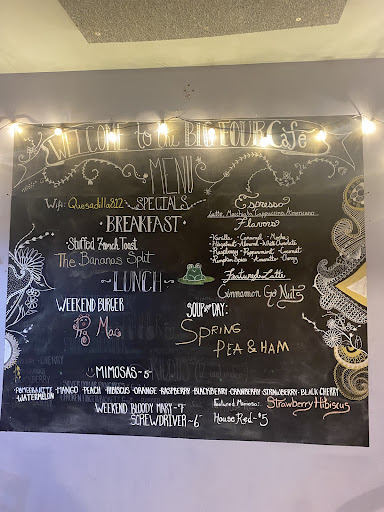 WELCOME to the BIG FOUR Café
MENU
Wifi: Quesadilla812
SPECIALS
·BREAKFAST·
·Stuffed French Toast
The Bananas Split
~LUNCH~
WEEKEND BURGER
PB Mac
Espresso
Latte, Macchiato, Cappuccino, Americano
Flavors
·Vanilla ·Caramel ·Mocha
·Hazelnut ·Almond ·White Chocolate
·Raspberry ·Peppermint ·Coconut
·Pumpkin Spice ·Amaretto ·Cherry
Featured Latte
Cinnamon Go Nuts
SOUP of the DAY:
SPRING
PEA & HAM
MIMOSAS ~5~
POMEGRANTE · MANGO · PEACH · HIBISCUS · ORANGE · RASPBERRY · BLACKBERRY · CRANBERRY · STRAWBERRY · BLACK CHERRY
WATERMELON
Featured Mimosa: Strawberry Hibiscus
WEEKEND BLOODY MARY ~7
SCREWDRIVER ~6
House Red ~ $5